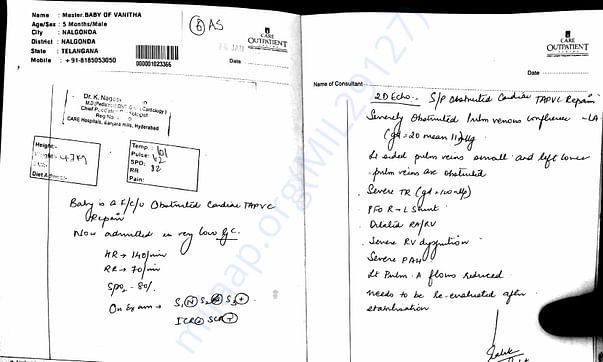 Name : Master.BABY OF VANITHA
Age/Sex : 5 Months/Male
City : NALGONDA
District : NALGONDA
State : TELANGANA
Mobile : +91-8185053050
000001023366
AS
CARE
OUTPATIENT
Date
Dr. K. Nages
CARE Hospitals, Banjara Hills, Hyderabad
Height:-
4.7Kg
Diet Advice:-
Temp:
Pulse:
SPO:
RR
Pain:
Baby is a F/C/O Obstructed Cardiac TAPVC
Repair
Now admitted in very low GC.
HR → 140/min
RR → 70/min
SpO2 - 80%
On Exam →
milaap.org/(MIL29127)
CARE
OUTPATIENT
Date
Name of Consultant
2D Echo:- S/P Obstructed Cardiac TAPVC Repair
Severely Obstructed Pulm venous confluence - LA
(gd = 20 mean
Lt sided pulm veins small and left lower
pulm veins are obstructed
Severe TR
PFO R→L Shunt
Dilated RA/RV
Severe RV dysfunction
Severe PAH
Lt Pulm. A flows reduced
needs to be Re-evaluated after
stabilisation